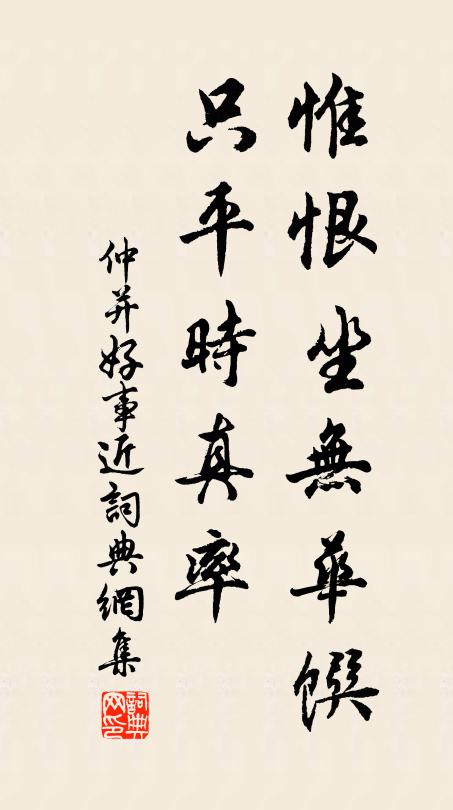 惟恨坐無華饌
只平時真率
仲并好事近詞典網集
詞典網印